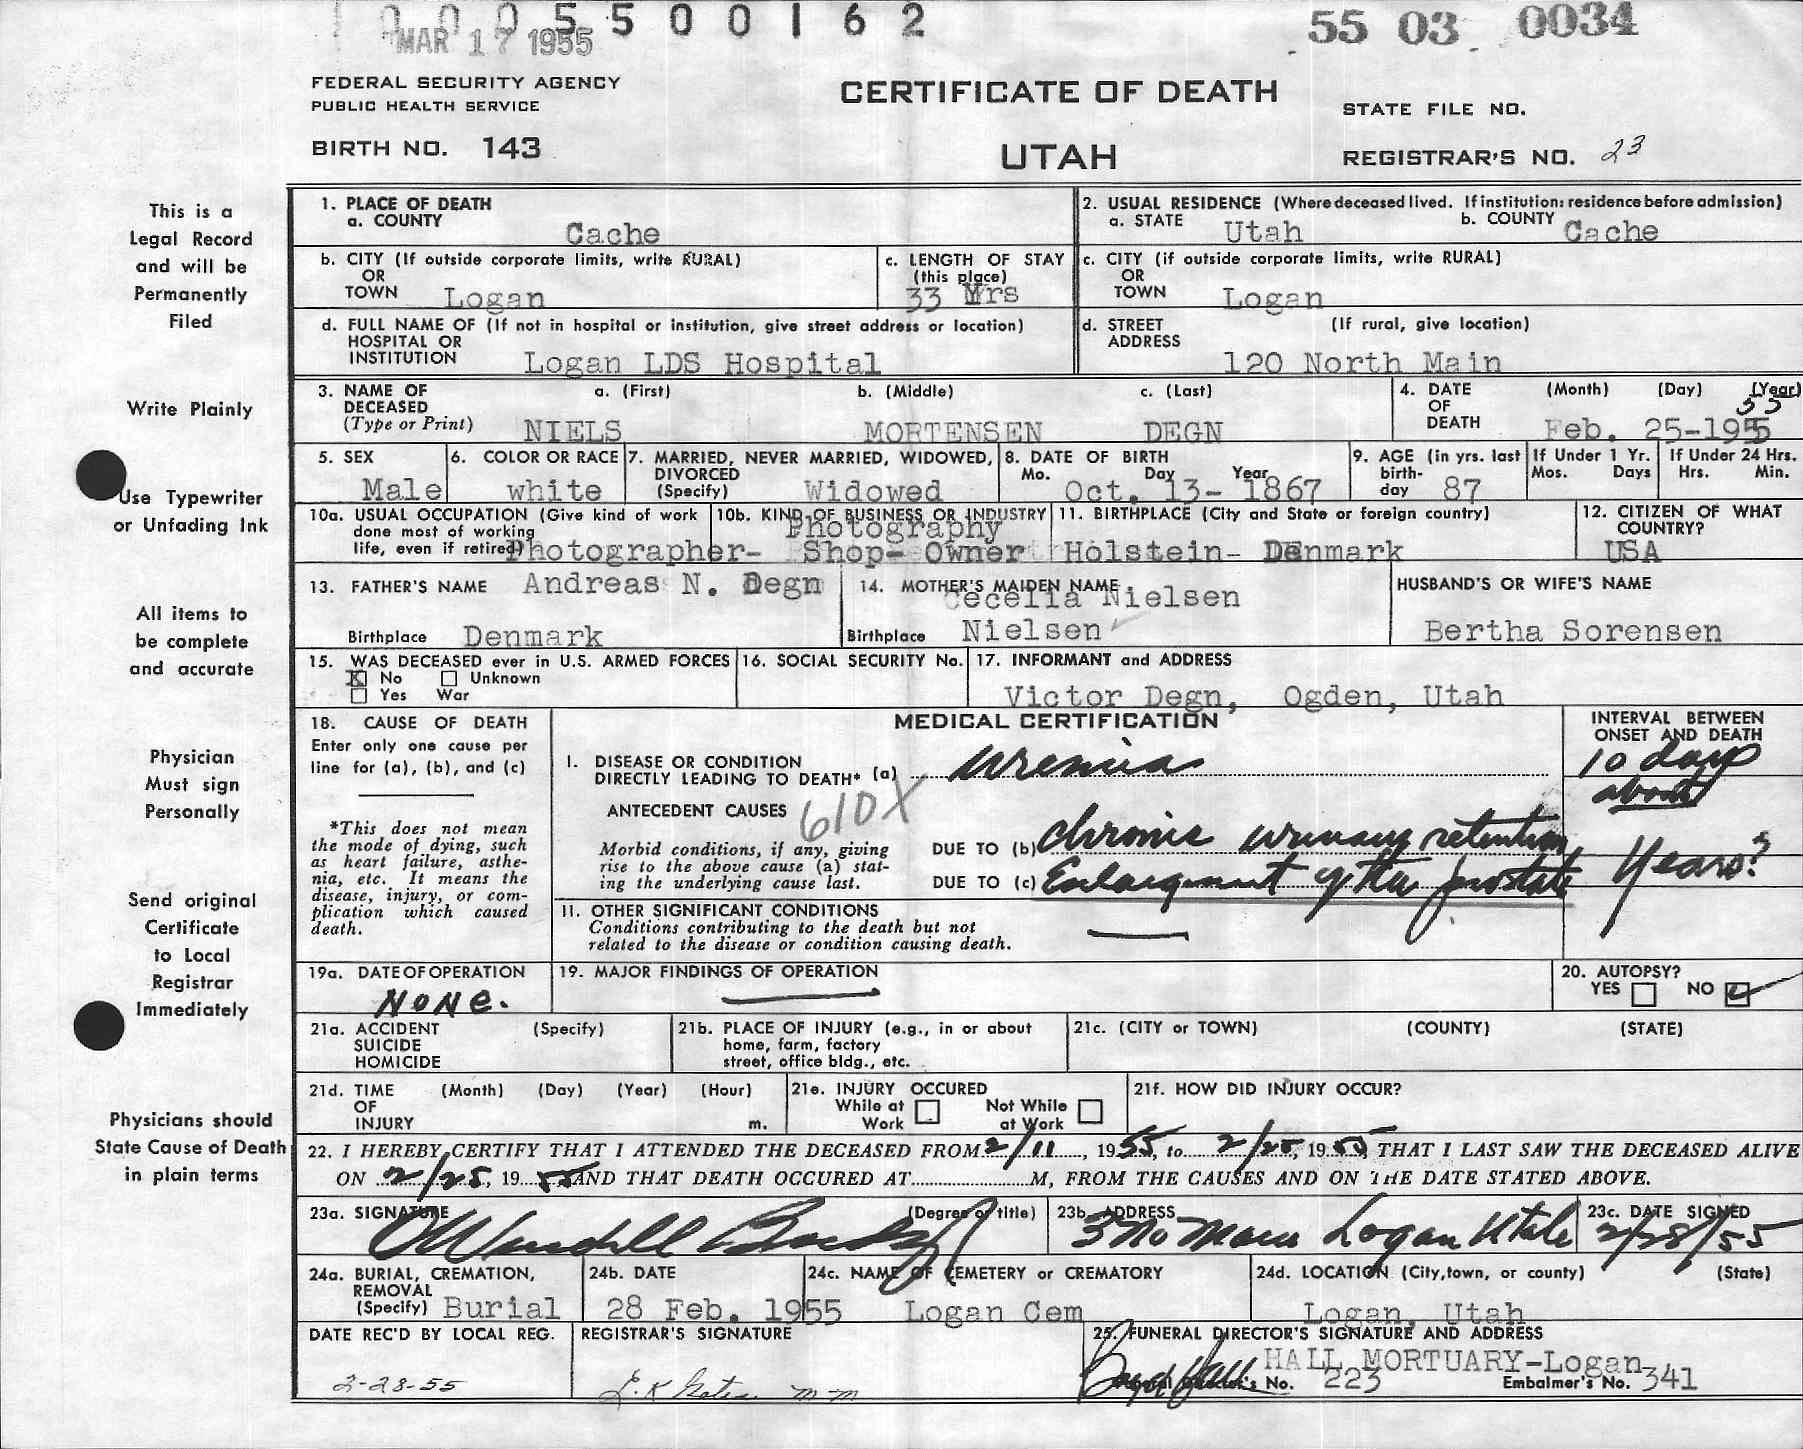 0005500162
MAR 17 1955
55 03 0034
FEDERAL SECURITY AGENCY
PUBLIC HEALTH SERVICE
BIRTH NO. 143
CERTIFICATE OF DEATH
UTAH
STATE FILE NO.
REGISTRAR'S NO. 23
This is a
Legal Record
and will be
Permanently
Filed
Write Plainly
Use Typewriter
or Unfading Ink
All items to
be complete
and accurate
Physician
Must sign
Personally
Send original
Certificate
to Local
Registrar
Immediately
Physicians should
State Cause of Death
in plain terms
1. PLACE OF DEATH
a. COUNTY
Cache
2. USUAL RESIDENCE (Where deceased lived. If institution: residence before admission)
a. STATE Utah b. COUNTY Cache
b. CITY (If outside corporate limits, write RURAL)
OR
TOWN Logan
c. LENGTH OF STAY
(this place)
33 Yrs
c. CITY (if outside corporate limits, write RURAL)
OR
TOWN Logan
d. FULL NAME OF (If not in hospital or institution, give street address or location)
HOSPITAL OR
INSTITUTION Logan LDS Hospital
d. STREET (If rural, give location)
ADDRESS
120 North Main
3. NAME OF a. (First) b. (Middle) c. (Last)
DECEASED
(Type or Print) NIELS MORTENSEN DEGN
4. DATE (Month) (Day) (Year)
OF 55
DEATH Feb. 25-1955
5. SEX
Male
6. COLOR OR RACE
white
7. MARRIED, NEVER MARRIED, WIDOWED,
DIVORCED
(Specify) Widowed
8. DATE OF BIRTH
Mo. Day Year
Oct. 13- 1867
9. AGE (in yrs. last
birth-
day 87
If Under 1 Yr.
Mos. Days
If Under 24 Hrs.
Hrs. Min.
10a. USUAL OCCUPATION (Give kind of work
done most of working
life, even if retired) Photographer-
10b. KIND OF BUSINESS OR INDUSTRY
Photography
Shop- Owner
11. BIRTHPLACE (City and State or foreign country)
Holstein- Denmark
12. CITIZEN OF WHAT
COUNTRY?
USA
13. FATHER'S NAME Andreas N. Degn
Birthplace Denmark
14. MOTHER'S MAIDEN NAME
Cecelia Nielsen
Birthplace Nielsen
HUSBAND'S OR WIFE'S NAME
Bertha Sorensen
15. WAS DECEASED ever in U.S. ARMED FORCES
X No Unknown
Yes War
16. SOCIAL SECURITY No.
17. INFORMANT and ADDRESS
Victor Degn, Ogden, Utah
18. CAUSE OF DEATH
Enter only one cause per
line for (a), (b), and (c)
*This does not mean
the mode of dying, such
as heart failure, asthe-
nia, etc. It means the
disease, injury, or com-
plication which caused
death.
MEDICAL CERTIFICATION
I. DISEASE OR CONDITION
DIRECTLY LEADING TO DEATH* (a) uremia
ANTECEDENT CAUSES 610X
Morbid conditions, if any, giving
rise to the above cause (a) stat-
ing the underlying cause last.
DUE TO (b) chronic urinary retention
DUE TO (c) Enlargement of the prostate
II. OTHER SIGNIFICANT CONDITIONS
Conditions contributing to the death but not
related to the disease or condition causing death.
INTERVAL BETWEEN
ONSET AND DEATH
10 days
about
Years?
19a. DATE OF OPERATION
NONE.
19. MAJOR FINDINGS OF OPERATION
20. AUTOPSY?
YES NO
21a. ACCIDENT (Specify)
SUICIDE
HOMICIDE
21b. PLACE OF INJURY (e.g., in or about
home, farm, factory
street, office bldg., etc.
21c. (CITY or TOWN) (COUNTY) (STATE)
21d. TIME (Month) (Day) (Year) (Hour)
OF
INJURY m.
21e. INJURY OCCURED
While at Not While
Work at Work
21f. HOW DID INJURY OCCUR?
22. I HEREBY CERTIFY THAT I ATTENDED THE DECEASED FROM 2/11, 1955, to 2/25, 1955, THAT I LAST SAW THE DECEASED ALIVE
ON 2/25, 1955 AND THAT DEATH OCCURED AT M, FROM THE CAUSES AND ON THE DATE STATED ABOVE.
23a. SIGNATURE (Degree or title)
O Wendell Budge
23b. ADDRESS
3 No Main Logan Utah
23c. DATE SIGNED
2/28/55
24a. BURIAL, CREMATION,
REMOVAL
(Specify) Burial
24b. DATE
28 Feb. 1955
24c. NAME OF CEMETERY or CREMATORY
Logan Cem
24d. LOCATION (City, town, or county) (State)
Logan, Utah
DATE REC'D BY LOCAL REG.
2-28-55
REGISTRAR'S SIGNATURE
25. FUNERAL DIRECTOR'S SIGNATURE AND ADDRESS
HALL MORTUARY-Logan
Funeral Director's No. 223 Embalmer's No. 341